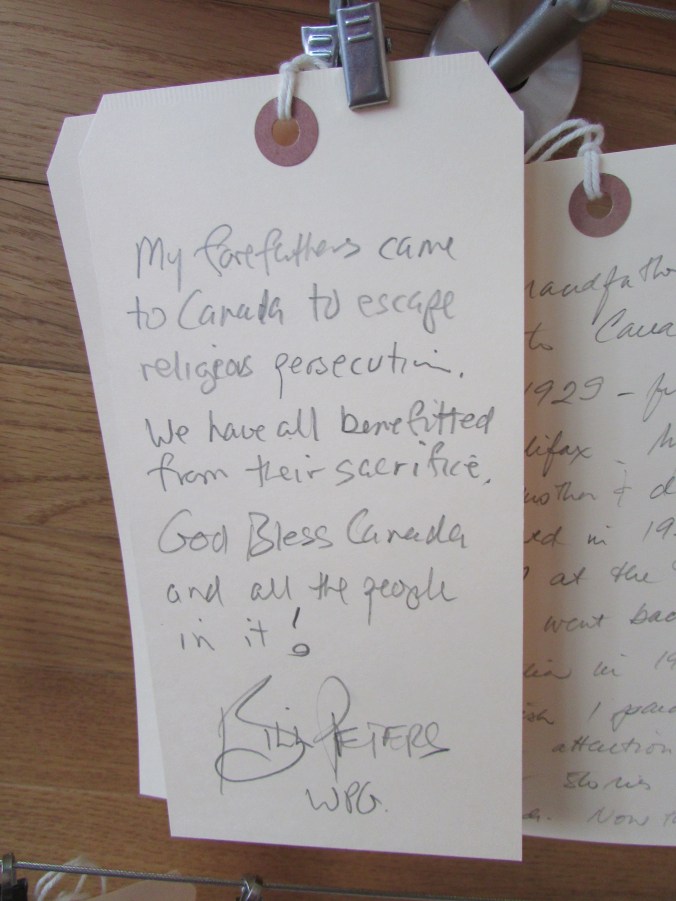 My forefathers came
to Canada to escape
religious persecution.
We have all benefitted
from their sacrifice.
God Bless Canada
and all the people
in it!
Bill Peters
WPG.
to Cana
1929 – fr
lifax
other & d
ed in 19
at the
went bac
in 19
I
attention
stories
Now